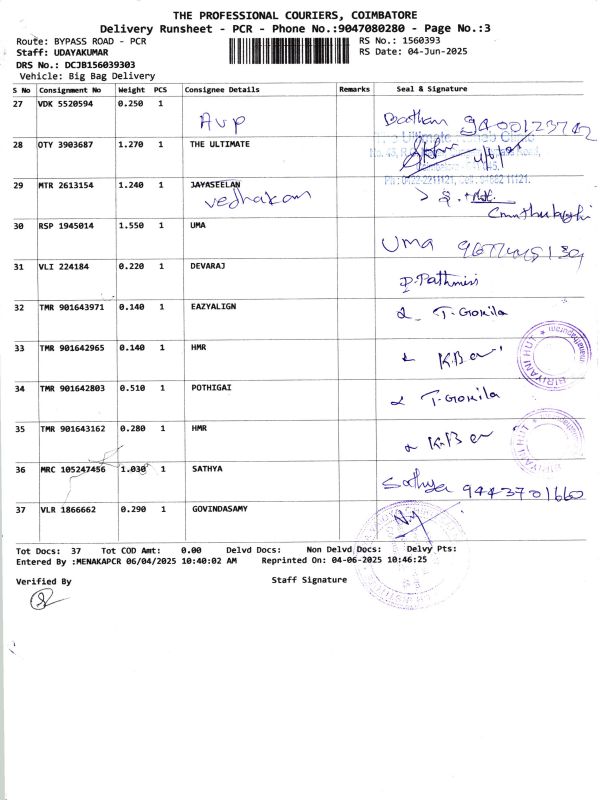 THE PROFESSIONAL COURIERS, COIMBATORE
Delivery Runsheet - PCR - Phone No.:9047080280 - Page No.:3
Route: BYPASS ROAD - PCR
RS No.: 1560393
Staff: UDAYAKUMAR
RS Date: 04-Jun-2025
DRS No.: DCJB156039303
Vehicle: Big Bag Delivery
S No Consignment No Weight PCS Consignee Details Remarks Seal & Signature
27 VDK 5520594 0.250 1
AVP
28 OTY 3903687 1.270 1 THE ULTIMATE
29 MTR 2613154 1.240 1 JAYASEELAN
30 RSP 1945014 1.550 1 UMA
Uma
31 VLI 224184 0.220 1 DEVARAJ
32 TMR 901643971 0.140 1 EAZYALIGN
T-Gokila
33 TMR 901642965 0.140 1 HMR
BIRIYANI HUT
34 TMR 901642803 0.510 1 POTHIGAI
T-Gokila
35 TMR 901643162 0.280 1 HMR
BIRIYANI HUT
36 MRC 105247456 1.030 1 SATHYA
Sathya 9443701660
37 VLR 1866662 0.290 1 GOVINDASAMY
Tot Docs: 37 Tot COD Amt: 0.00 Delvd Docs: Non Delvd Docs: Delvy Pts:
Entered By :MENAKAPCR 06/04/2025 10:40:02 AM Reprinted On: 04-06-2025 10:46:25
Verified By
Staff Signature